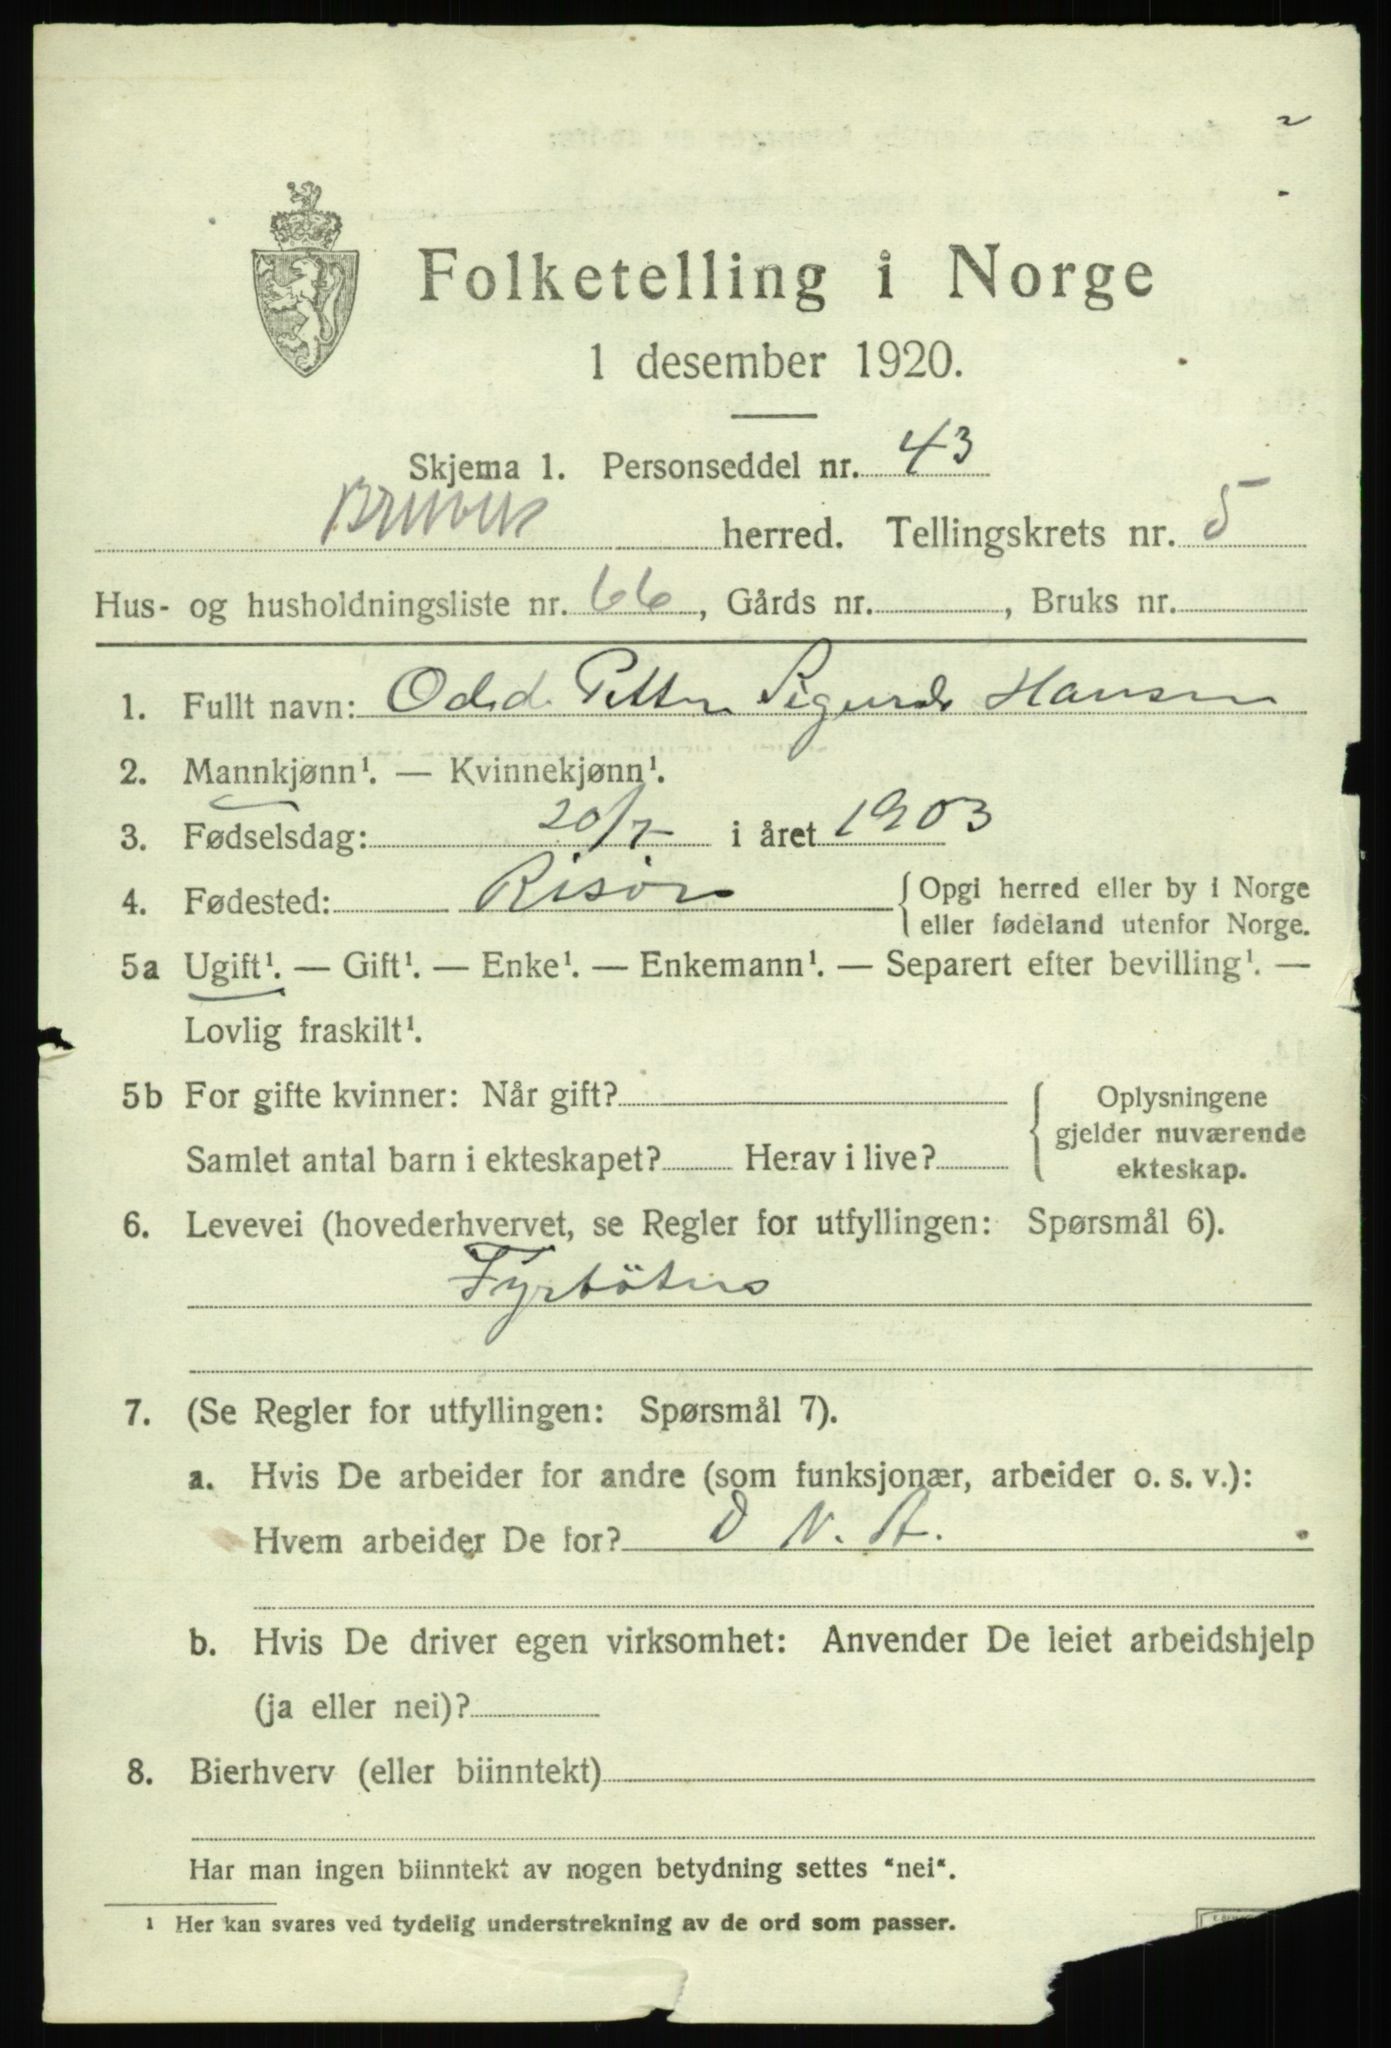 Folketelling i Norge
1 desember 1920.
Skjema 1. Personseddel nr. 43
herred. Tellingskrets nr. 5
Hus- og husholdningsliste nr. 66, Gårds nr. , Bruks nr.
1. Fullt navn: Odd Petter Sigurd Hansen
2. Mannkjønn¹. — Kvinnekjønn¹.
3. Fødselsdag: 20/7 i året 1903
4. Fødested: Risör
Opgi herred eller by i Norge
eller fødeland utenfor Norge.
5a Ugift¹. — Gift¹. — Enke¹. — Enkemann¹. — Separert efter bevilling¹. —
Lovlig fraskilt¹.
5b For gifte kvinner: Når gift?
Samlet antal barn i ekteskapet? Herav i live?
Oplysningene
gjelder nuværende
ekteskap.
6. Levevei (hovederhvervet, se Regler for utfyllingen: Spørsmål 6).
Fyrböter
7. (Se Regler for utfyllingen: Spørsmål 7).
a. Hvis De arbeider for andre (som funksjonær, arbeider o. s. v.):
Hvem arbeider De for? D N. A.
b. Hvis De driver egen virksomhet: Anvender De leiet arbeidshjelp
(ja eller nei)?
8. Bierhverv (eller biinntekt)
Har man ingen biinntekt av nogen betydning settes "nei".
1 Her kan svares ved tydelig understrekning av de ord som passer.